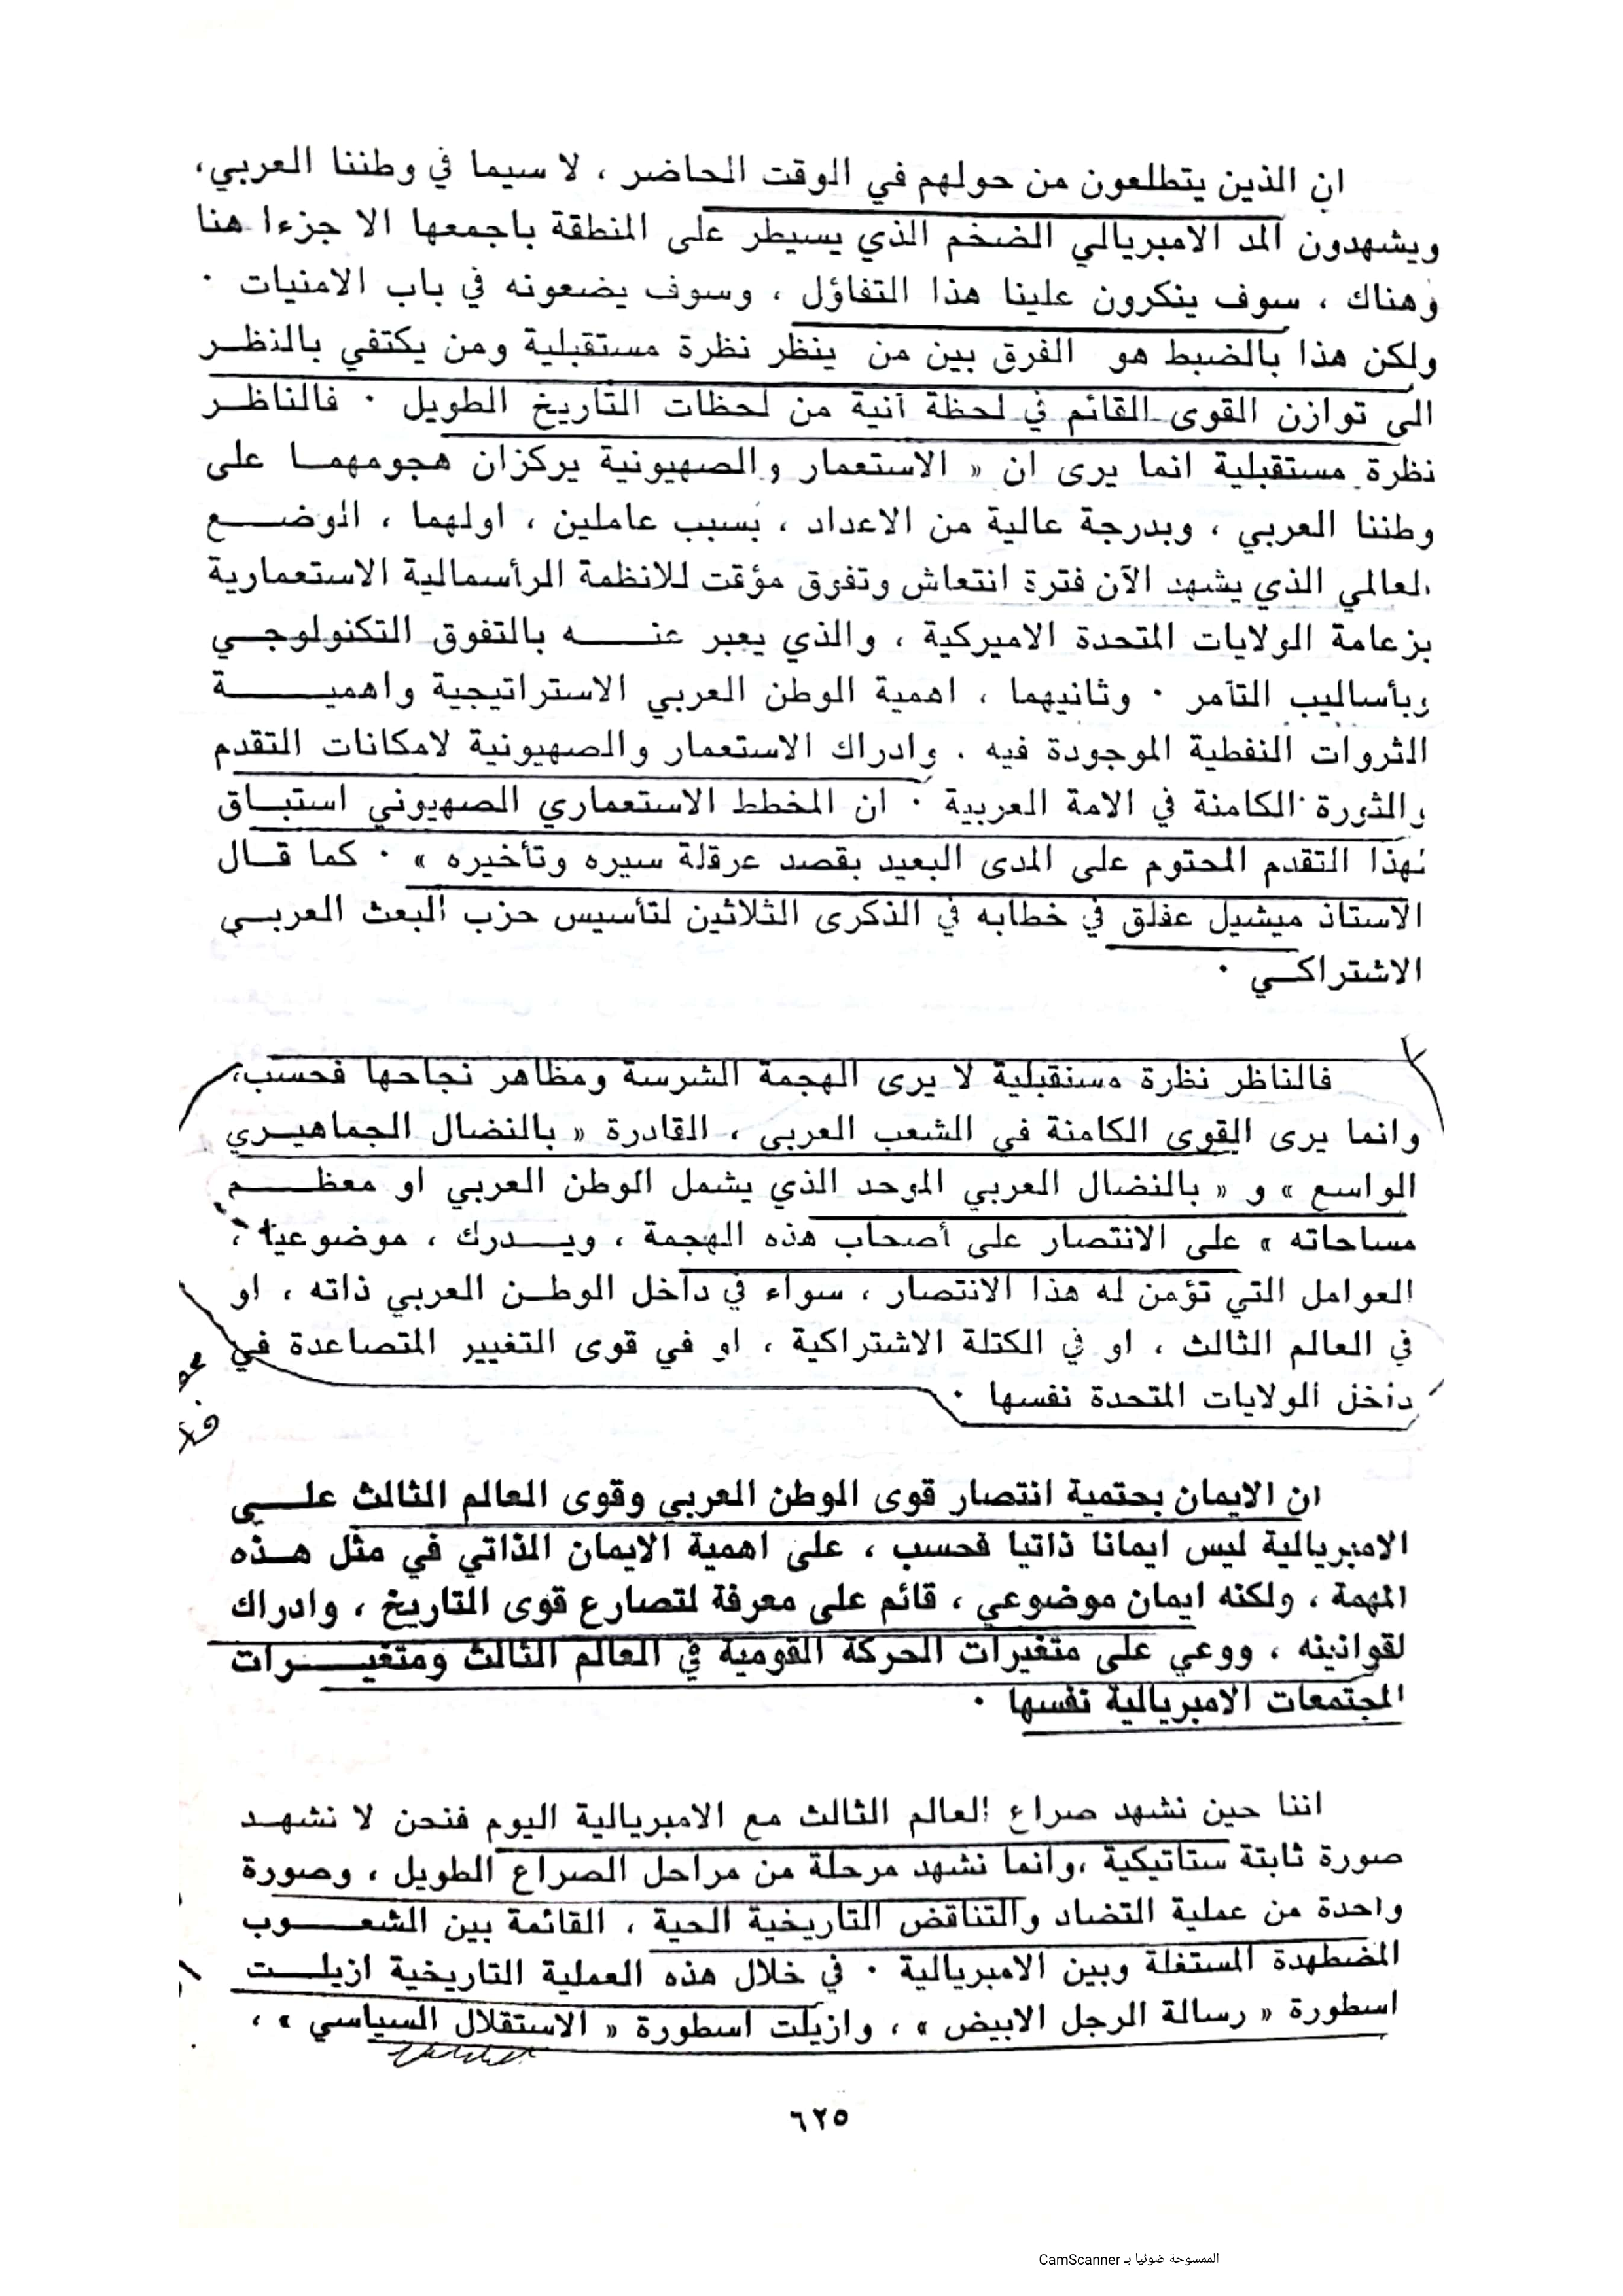 ان الذين يتطلعون من حولهم في الوقت الحاضر ، لا سيما في وطننا العربي،
ويشهدون المد الامبريالي الضخم الذي يسيطر على المنطقة باجمعها الا جزءا هنا
وهناك ، سوف ينكرون علينا هذا التفاؤل ، وسوف يضعونه في باب الامنيات ٠
ولكن هذا بالضبط هو الفرق بين من ينظر نظرة مستقبلية ومن يكتفي بالنظر
الى توازن القوى القائم في لحظة آنية من لحظات التاريخ الطويل ٠ فالناظر
نظرة مستقبلية انما يرى ان « الاستعمار والصهيونية يركزان هجومهما على
وطننا العربي ، وبدرجة عالية من الاعداد ، بسبب عاملين ، اولهما ، الوضع
العالمي الذي يشهد الآن فترة انتعاش وتفوق مؤقت للانظمة الرأسمالية الاستعمارية
بزعامة الولايات المتحدة الاميركية ، والذي يعبر عنه بالتفوق التكنولوجي
وبأساليب التآمر ٠ وثانيهما ، اهمية الوطن العربي الاستراتيجية واهمية
الثروات النفطية الموجودة فيه . وادراك الاستعمار والصهيونية لامكانات التقدم
والثورة الكامنة في الامة العربية ٠ ان المخطط الاستعماري الصهيوني استباق
لهذا التقدم المحتوم على المدى البعيد بقصد عرقلة سيره وتأخيره » ٠ كما قال
الاستاذ ميشيل عفلق في خطابه في الذكرى الثلاثين لتأسيس حزب البعث العربي
الاشتراكي ٠
فالناظر نظرة مستقبلية لا يرى الهجمة الشرسة ومظاهر نجاحها فحسب،
وانما يرى القوى الكامنة في الشعب العربي ، القادرة « بالنضال الجماهيري
الواسع » و « بالنضال العربي الموحد الذي يشمل الوطن العربي او معظم
مساحاته » على الانتصار على أصحاب هذه الهجمة ، ويدرك ، موضوعيا ،
العوامل التي تؤمن له هذا الانتصار ، سواء في داخل الوطن العربي ذاته ، او
في العالم الثالث ، او في الكتلة الاشتراكية ، او في قوى التغيير المتصاعدة في
داخل الولايات المتحدة نفسها ٠
ان الايمان بحتمية انتصار قوى الوطن العربي وقوى العالم الثالث على
الامبريالية ليس ايمانا ذاتيا فحسب ، على اهمية الايمان الذاتي في مثل هذه
المهمة ، ولكنه ايمان موضوعي ، قائم على معرفة لتصارع قوى التاريخ ، وادراك
لقوانينه ، ووعي على متغيرات الحركة القومية في العالم الثالث ومتغيرات
المجتمعات الامبريالية نفسها ٠
اننا حين نشهد صراع العالم الثالث مع الامبريالية اليوم فنحن لا نشهد
صورة ثابتة ستاتيكية ،وانما نشهد مرحلة من مراحل الصراع الطويل ، وصورة
واحدة من عملية التضاد والتناقض التاريخية الحية ، القائمة بين الشعوب
المضطهدة المستغلة وبين الامبريالية ٠ في خلال هذه العملية التاريخية ازيلت
اسطورة « رسالة الرجل الابيض » ، وازيلت اسطورة « الاستقلال السياسي » ،
٦٢٥
الممسوحة ضوئيا بـ CamScanner